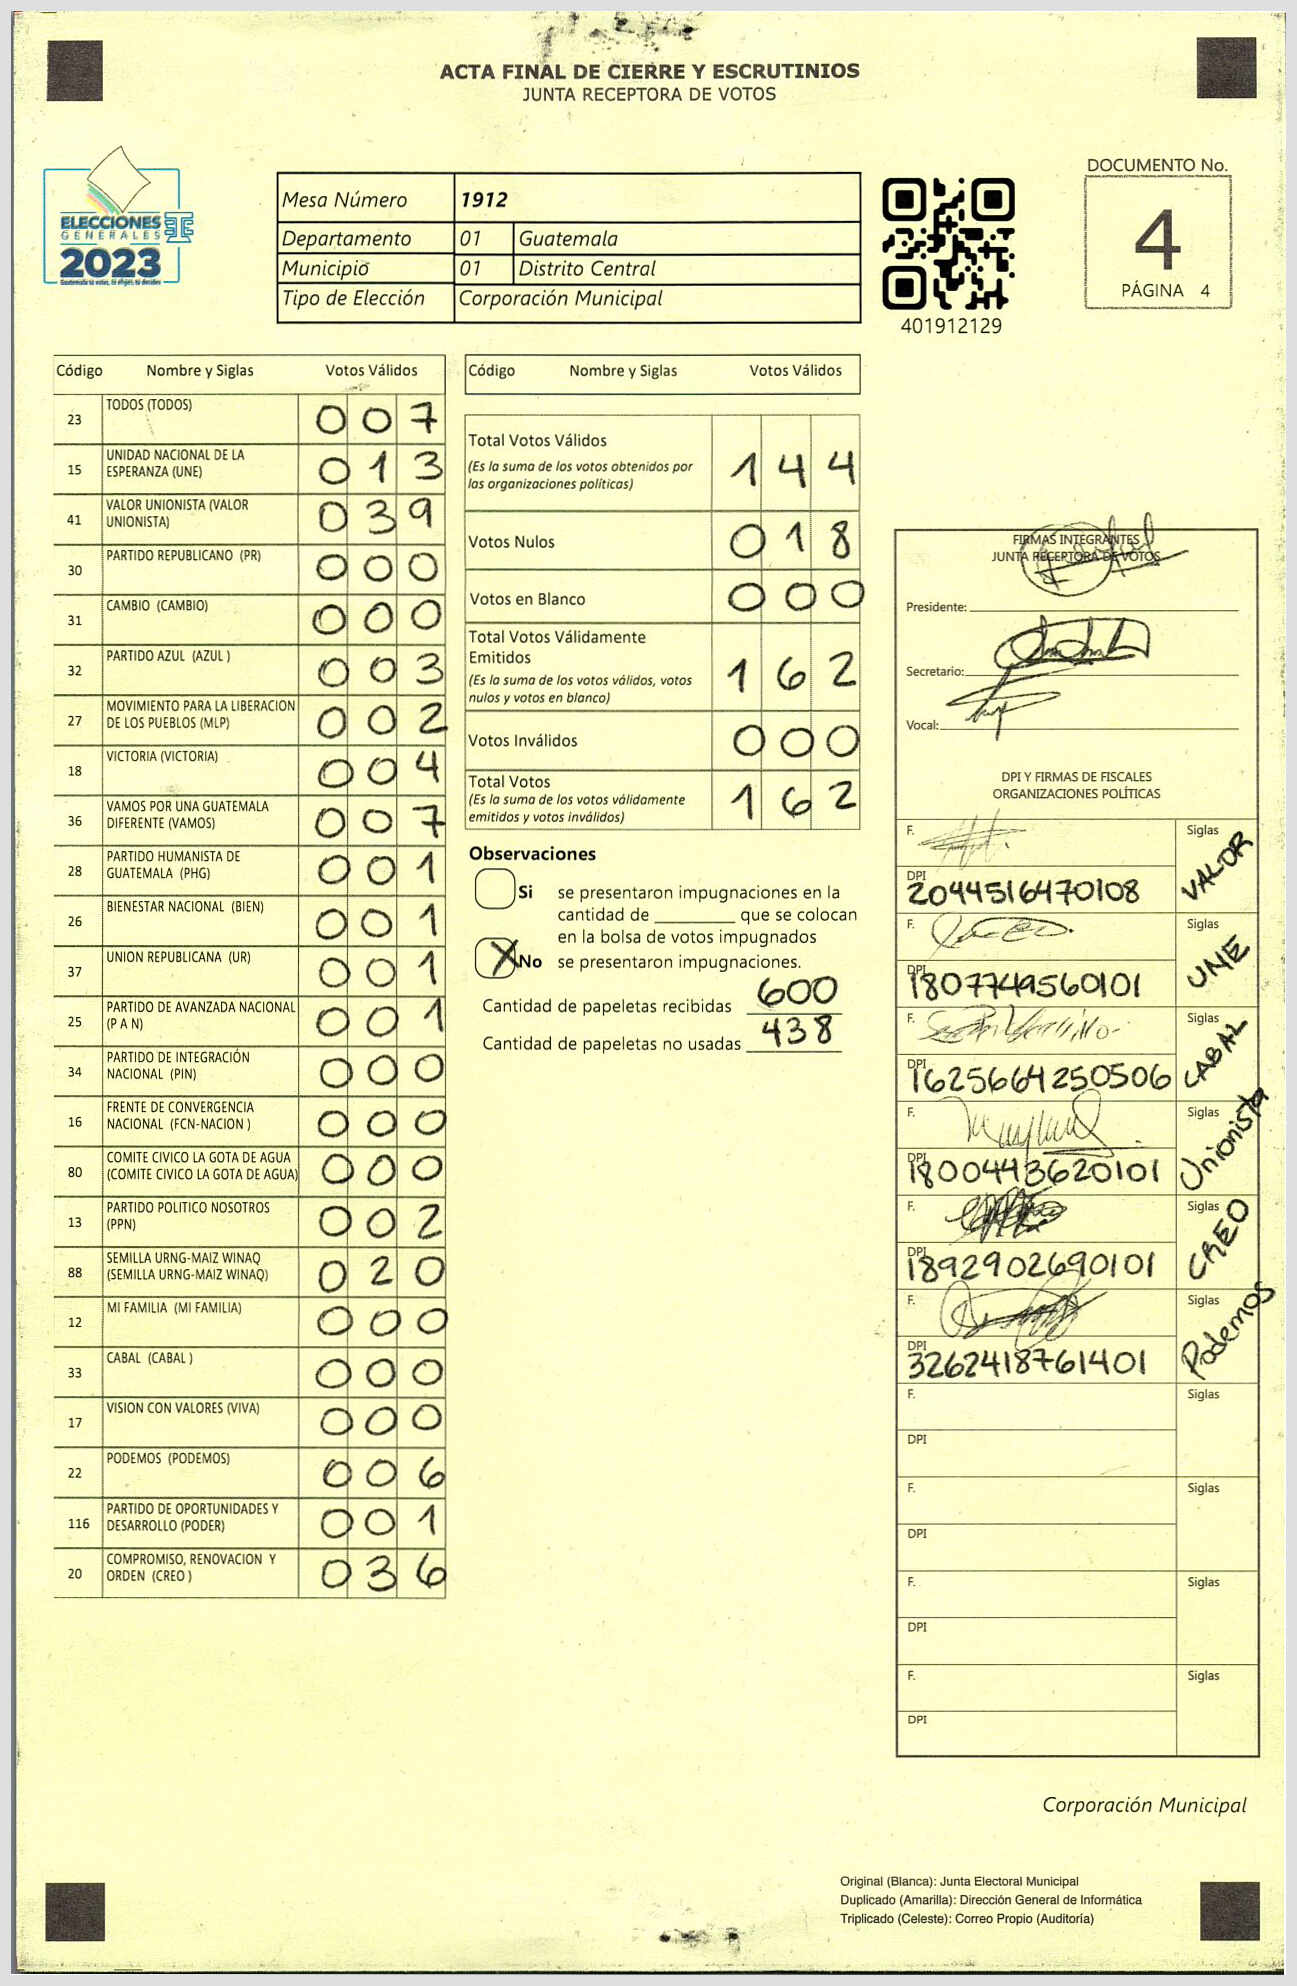 ACTA FINAL DE CIERRE Y ESCRUTINIOS
JUNTA RECEPTORA DE VOTOS
ELECCIONES
GENERALES
2023
Guatemala tu votas, tú eliges, tú decides
Mesa Número 1912
Departamento 01 Guatemala
Municipio 01 Distrito Central
Tipo de Elección Corporación Municipal
401912129
DOCUMENTO No.
4
PÁGINA 4
Código Nombre y Siglas Votos Válidos
23 TODOS (TODOS) 0 0 7
15 UNIDAD NACIONAL DE LA
ESPERANZA (UNE) 0 1 3
41 VALOR UNIONISTA (VALOR
UNIONISTA) 0 3 9
30 PARTIDO REPUBLICANO (PR) 0 0 0
31 CAMBIO (CAMBIO) 0 0 0
32 PARTIDO AZUL (AZUL ) 0 0 3
27 MOVIMIENTO PARA LA LIBERACION
DE LOS PUEBLOS (MLP) 0 0 2
18 VICTORIA (VICTORIA) 0 0 4
36 VAMOS POR UNA GUATEMALA
DIFERENTE (VAMOS) 0 0 7
28 PARTIDO HUMANISTA DE
GUATEMALA (PHG) 0 0 1
26 BIENESTAR NACIONAL (BIEN) 0 0 1
37 UNION REPUBLICANA (UR) 0 0 1
25 PARTIDO DE AVANZADA NACIONAL
(P A N) 0 0 1
34 PARTIDO DE INTEGRACIÓN
NACIONAL (PIN) 0 0 0
16 FRENTE DE CONVERGENCIA
NACIONAL (FCN-NACION ) 0 0 0
80 COMITE CIVICO LA GOTA DE AGUA
(COMITE CIVICO LA GOTA DE AGUA) 0 0 0
13 PARTIDO POLITICO NOSOTROS
(PPN) 0 0 2
88 SEMILLA URNG-MAIZ WINAQ
(SEMILLA URNG-MAIZ WINAQ) 0 2 0
12 MI FAMILIA (MI FAMILIA) 0 0 0
33 CABAL (CABAL ) 0 0 0
17 VISION CON VALORES (VIVA) 0 0 0
22 PODEMOS (PODEMOS) 0 0 6
116 PARTIDO DE OPORTUNIDADES Y
DESARROLLO (PODER) 0 0 1
20 COMPROMISO, RENOVACION Y
ORDEN (CREO ) 0 3 6
Código Nombre y Siglas Votos Válidos
Total Votos Válidos
(Es la suma de los votos obtenidos por
las organizaciones políticas) 1 4 4
Votos Nulos 0 1 8
Votos en Blanco 0 0 0
Total Votos Válidamente
Emitidos
(Es la suma de los votos válidos, votos
nulos y votos en blanco) 1 6 2
Votos Inválidos 0 0 0
Total Votos
(Es la suma de los votos válidamente
emitidos y votos inválidos) 1 6 2
Observaciones
Si se presentaron impugnaciones en la
cantidad de ________ que se colocan
en la bolsa de votos impugnados
X No se presentaron impugnaciones.
Cantidad de papeletas recibidas 600
Cantidad de papeletas no usadas 438
FIRMAS INTEGRANTES
JUNTA RECEPTORA DE VOTOS
Presidente:
Secretario:
Vocal:
DPI Y FIRMAS DE FISCALES
ORGANIZACIONES POLÍTICAS
F. Siglas
DPI 2044516470108 VALOR
F. Siglas
DPI 1807749560101 UNE
F. Siglas
DPI 1625664250506 CABAL
F. Siglas
DPI 1800443620101 Unionista
F. Siglas
DPI 1892902690101 CREO
F. Siglas
DPI 3262418761401 Podemos
F. Siglas
DPI
F. Siglas
DPI
F. Siglas
DPI
F. Siglas
DPI
Corporación Municipal
Original (Blanca): Junta Electoral Municipal
Duplicado (Amarilla): Dirección General de Informática
Triplicado (Celeste): Correo Propio (Auditoría)